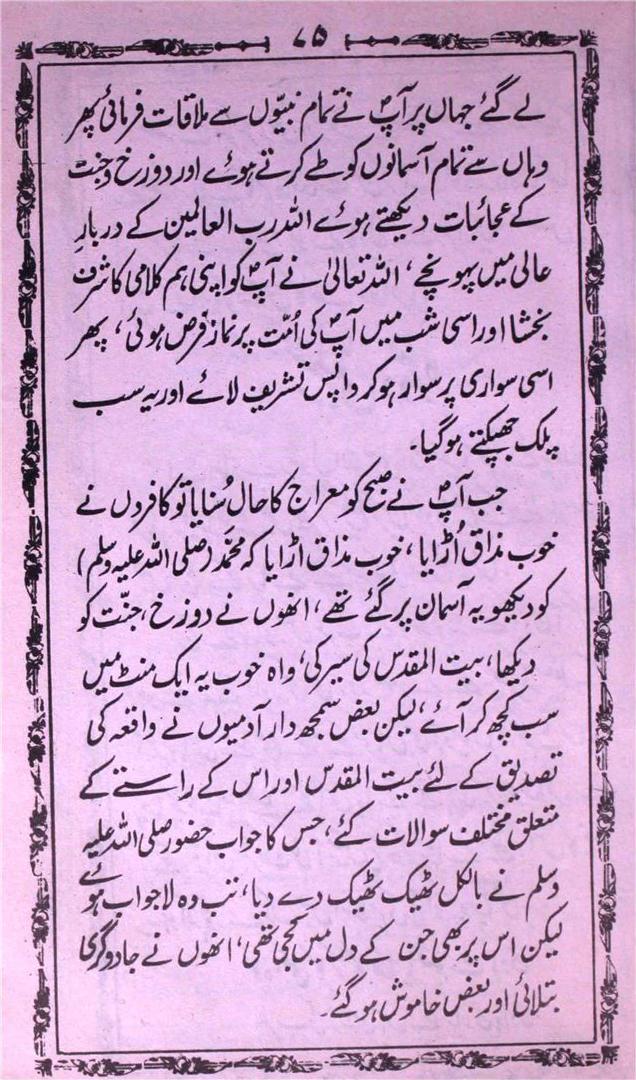 ۸۵
لے گئے جہاں پر آپؐ نے تمام نبیّوں سے ملاقات فرمائی پھر
وہاں سے تمام آسمانوں کو طے کرتے ہوئے اور دوزخ و جنت
کے عجائبات دیکھتے ہوئے اللہ رب العالمین کے دربارِ
عالی میں پہونچے، اللہ تعالیٰ نے آپؐ کو اپنی ہم کلامی کا شرف
بخشا اور اسی شب میں آپؐ کی اُمّت پر نماز فرض ہوئی، پھر
اسی سواری پر سوار ہو کر واپس تشریف لائے اور یہ سب
پلک جھپکتے ہو گیا۔
جب آپؐ نے صبح کو معراج کا حال سُنایا تو کافروں نے
خوب مذاق اُڑایا، خوب مذاق اڑایا کہ محمّد (صلی اللہ علیہ وسلم)
کو دیکھو یہ آسمان پر گئے تھے، انھوں نے دوزخ، جنّت کو
دیکھا، بیت المقدس کی سیر کی، واہ خوب یہ ایک منٹ میں
سب کچھ کر آئے، لیکن بعض سمجھ دار آدمیوں نے واقعہ کی
تصدیق کے لئے بیت المقدس اور اس کے راستے کے
متعلق مختلف سوالات کئے، جس کا جواب حضور صلی اللہ علیہ
وسلم نے بالکل ٹھیک ٹھیک دے دیا، تب وہ لاجواب ہوئے
لیکن اس پر بھی جن کے دل میں کجی تھی، انھوں نے جادوگری
بتلائی اور بعض خاموش ہو گئے۔